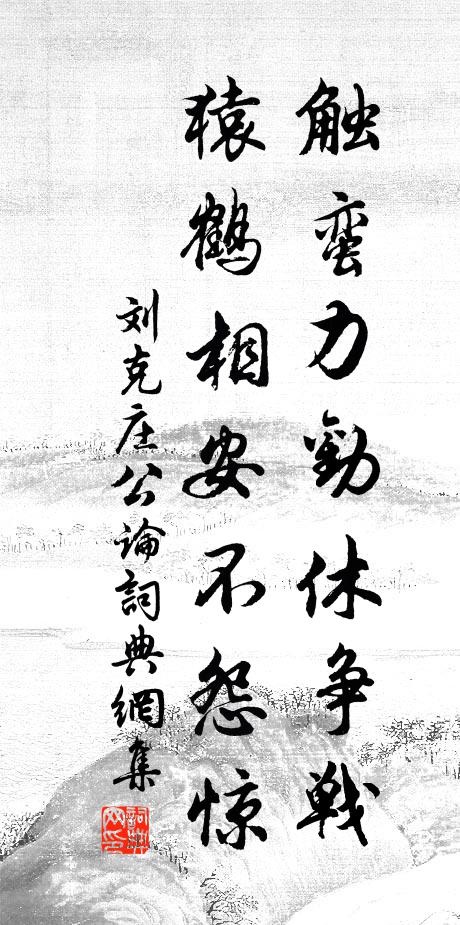 触蛮力劝休争战
猿鹤相安不怨惊
刘克庄公论詞典網集